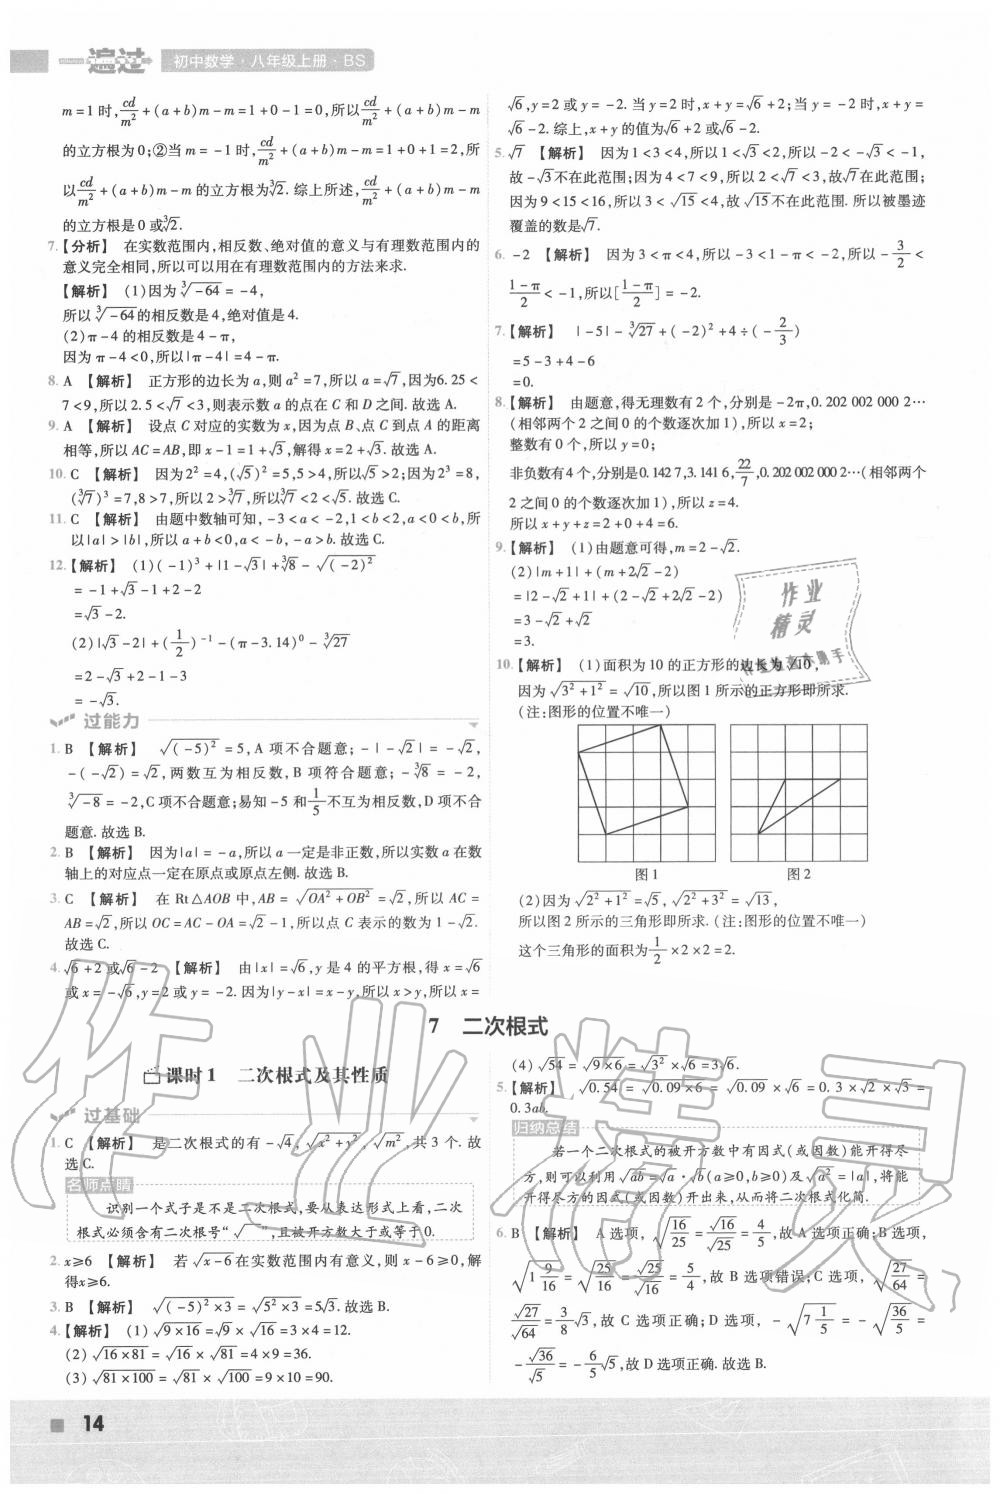 一遍过 初中数学·八年级上册·BS
m=1时,cd/m²+(a+b)m-m=1+0-1=0,所以cd/m²+(a+b)m-m
的立方根为0;②当m=-1时,cd/m²+(a+b)m-m=1+0+1=2,所
以cd/m²+(a+b)m-m的立方根为∛2.综上所述,cd/m²+(a+b)m-m
的立方根是0或∛2.
7.【分析】 在实数范围内,相反数、绝对值的意义与有理数范围内的
意义完全相同,所以可以用在有理数范围内的方法来求.
【解析】 (1)因为∛-64=-4,
所以∛-64的相反数是4,绝对值是4.
(2)π-4的相反数是4-π,
因为π-4<0,所以|π-4|=4-π.
8. A 【解析】 正方形的边长为a,则a²=7,所以a=√7,因为6.25<
7<9,所以2.5<√7<3,则表示数a的点在C和D之间.故选A.
9. A 【解析】 设点C对应的实数为x,因为点B、点C到点A的距离
相等,所以AC=AB,即x-1=1+√3,解得x=2+√3.故选A.
10. C 【解析】 因为2²=4,(√5)²=5,5>4,所以√5>2;因为2³=8,
(∛7)³=7,8>7,所以2>∛7,所以∛7<2<√5.故选C.
11. C 【解析】 由题中数轴可知,-3<a<-2,1<b<2,a<0<b,所
以|a|>|b|,所以a+b<0,a<-b,-a>b.故选C.
12.【解析】 (1)(-1)³+|1-√3|+∛8-√(-2)²
=-1+√3-1+2-2
=√3-2.
(2)|√3-2|+(1/2)⁻¹-(π-3.14)⁰-∛27
=2-√3+2-1-3
=-√3.
过能力
1. B 【解析】 √(-5)²=5,A项不合题意;-|-√2|=-√2,
-(-√2)=√2,两数互为相反数,B项符合题意;-∛8=-2,
∛-8=-2,C项不合题意;易知-5和1/5不互为相反数,D项不合
题意.故选B.
2. B 【解析】 因为|a|=-a,所以a一定是非正数,所以实数a在数
轴上的对应点一定在原点或原点左侧.故选B.
3. C 【解析】 在Rt△AOB中,AB=√(OA²+OB²)=√2,所以AC=
AB=√2,所以OC=AC-OA=√2-1,所以点C表示的数为1-√2.
故选C.
4. √6+2或√6-2 【解析】 由|x|=√6,y是4的平方根,得x=√6
或x=-√6,y=2或y=-2.因为|y-x|=x-y,所以x>y,所以x=
√6,y=2或y=-2.当y=2时,x+y=√6+2;当y=-2时,x+y=
√6-2.综上,x+y的值为√6+2或√6-2.
5. √7 【解析】 因为1<3<4,所以1<√3<2,所以-2<-√3<-1,
故-√3不在此范围;因为4<7<9,所以2<√7<3,故√7在此范围;
因为9<15<16,所以3<√15<4,故√15不在此范围.所以被墨迹
覆盖的数是√7.
6. -2 【解析】 因为3<π<4,所以-3<1-π<-2,所以-3/2<
(1-π)/2<-1,所以[(1-π)/2]=-2.
7.【解析】 |-5|-∛27+(-2)²+4÷(-2/3)
=5-3+4-6
=0.
8.【解析】 由题意,得无理数有2个,分别是-2π,0.202 002 000 2…
(相邻两个2之间0的个数逐次加1),所以x=2;
整数有0个,所以y=0;
非负数有4个,分别是0.142 7,3.141 6,22/7,0.202 002 000 2…(相邻两个
2之间0的个数逐次加1),所以z=4.
所以x+y+z=2+0+4=6.
9.【解析】 (1)由题意可得,m=2-√2.
(2)|m+1|+(m+2√2-2)
=|2-√2+1|+(2-√2+2√2-2)
=3-√2+√2
=3.
10.【解析】 (1)面积为10的正方形的边长为√10,
因为√(3²+1²)=√10,所以图1所示的正方形即所求.
(注:图形的位置不唯一)
图1 图2
(2)因为√(2²+1²)=√5,√(2²+3²)=√13,
所以图2所示的三角形即所求.(注:图形的位置不唯一)
这个三角形的面积为1/2×2×2=2.
7 二次根式
课时1 二次根式及其性质
过基础
1. C 【解析】 是二次根式的有-√4,√(x²+1),√m²,共3个.故
选C.
名师点睛
识别一个式子是不是二次根式,要从表达形式上看,二次
根式必须含有二次根号“√ ”,且被开方数大于或等于0.
2. x≥6 【解析】 若√(x-6)在实数范围内有意义,则x-6≥0,解
得x≥6.
3. B 【解析】 √((-5)²×3)=√(5²×3)=5√3.故选B.
4.【解析】 (1)√(9×16)=√9×√16=3×4=12.
(2)√(16×81)=√16×√81=4×9=36.
(3)√(81×100)=√81×√100=9×10=90.
(4)√54=√(9×6)=√3²×√6=3√6.
5.【解析】 √0.54=√(0.09×6)=√0.09×√6=0.3×√2×√3=
0.3ab.
归纳总结
若一个二次根式的被开方数中有因式(或因数)能开得尽
方,则可以利用√ab=√a·√b(a≥0,b≥0)及√a²=|a|,将能
开得尽方的因式(或因数)开出来,从而将二次根式化简.
6. B 【解析】 A选项,√(16/25)=√16/√25=4/5,故A选项正确;B选项,
√(1 9/16)=√(25/16)=√25/√16=5/4,故B选项错误;C选项,√(27/64)=
√27/√64=3/8√3,故C选项正确;D选项,-√(7 1/5)=-√(36/5)=
-√36/√5=-6/5√5,故D选项正确.故选B.
14
作业
精灵
作业精灵